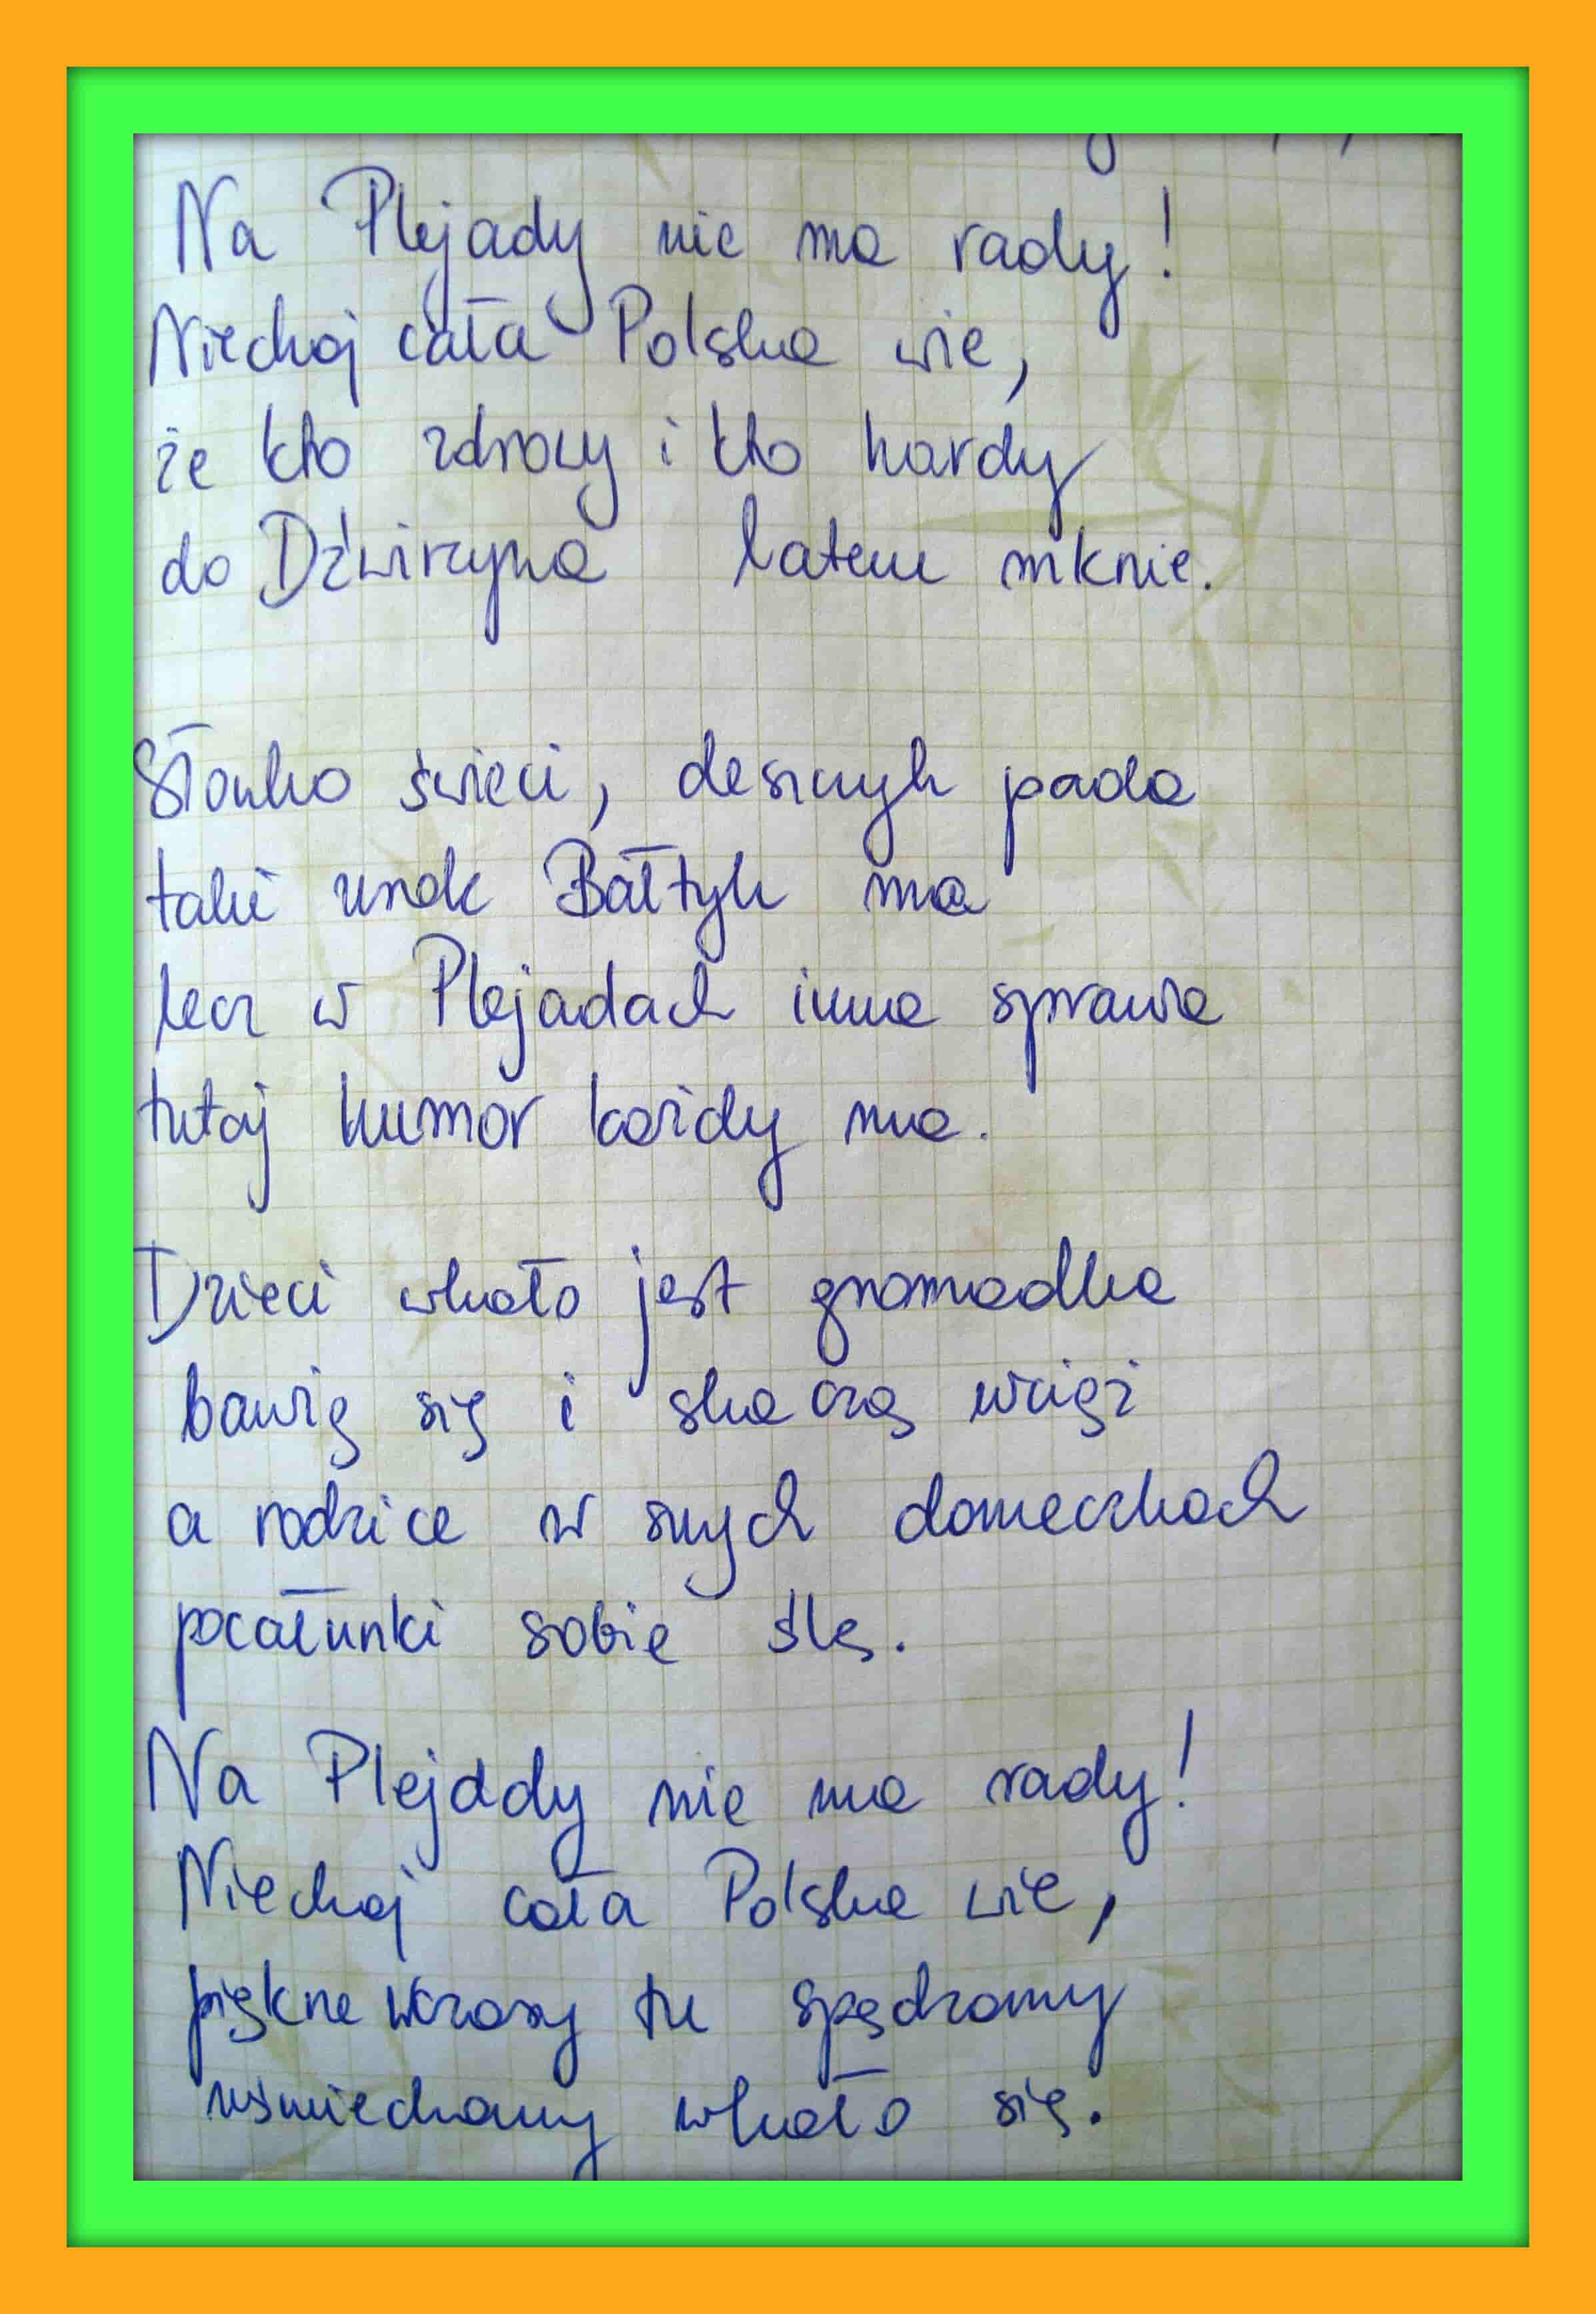 Na Plejady nie ma rady!
Niechaj cała Polska wie,
że kto zdrowy i kto hardy
do Dźwirzyna latem mknie.
Słonko świeci, deszczyk pada
taki urok Bałtyk ma
lecz w Plejadach inna sprawa
tutaj humor każdy ma.
Dzieci wkoło jest gromadka
bawią się i skaczą wciąż
a rodzice w swych domeczkach
pocałunki sobie ślą.
Na Plejady nie ma rady!
Niechaj cała Polska wie,
piękne wczasy tu spędzamy
uśmiechamy wkoło się.